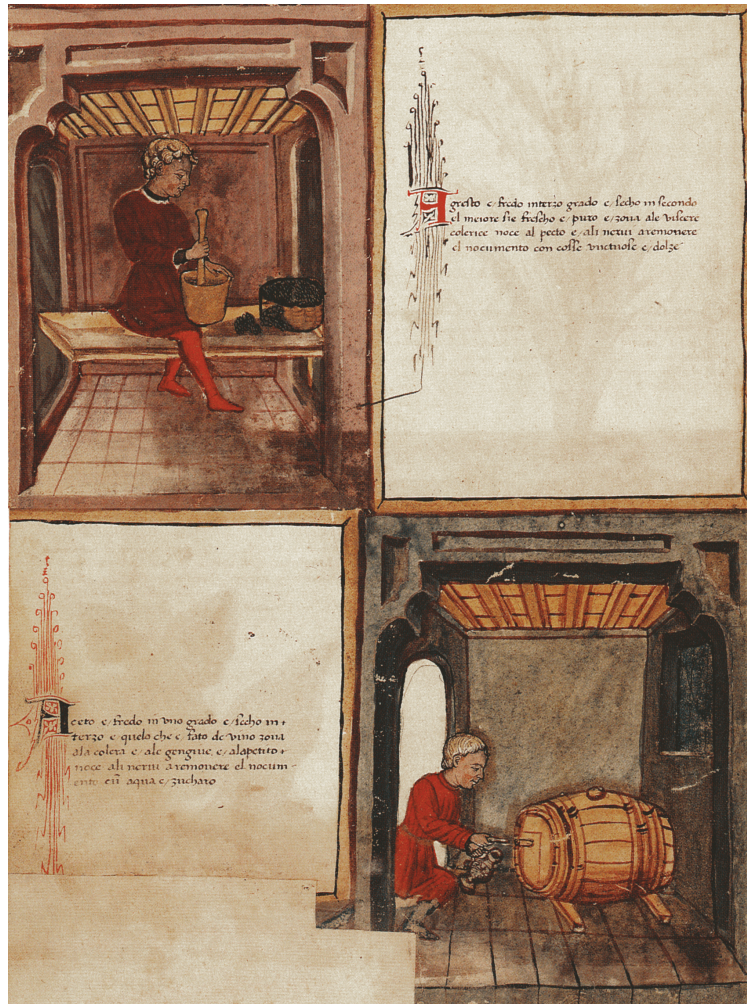 Agresto e/ fredo in terzo grado e/ secho in secondo
el meiore sie frescho e/ puro e/ zova ale viscere
colerice noce al pecto e/ ali nervi a removere
el nocumento con cosse vnctuose e/ dolze
Aceto e/ fredo in vno grado e/ secho in
terzo e quelo che e/ fato de vino zova
ala colera e/ ale gengiue e/ alapetito
noce ali nervi a removere el nocum-
ento cū aqua e/ zucharo